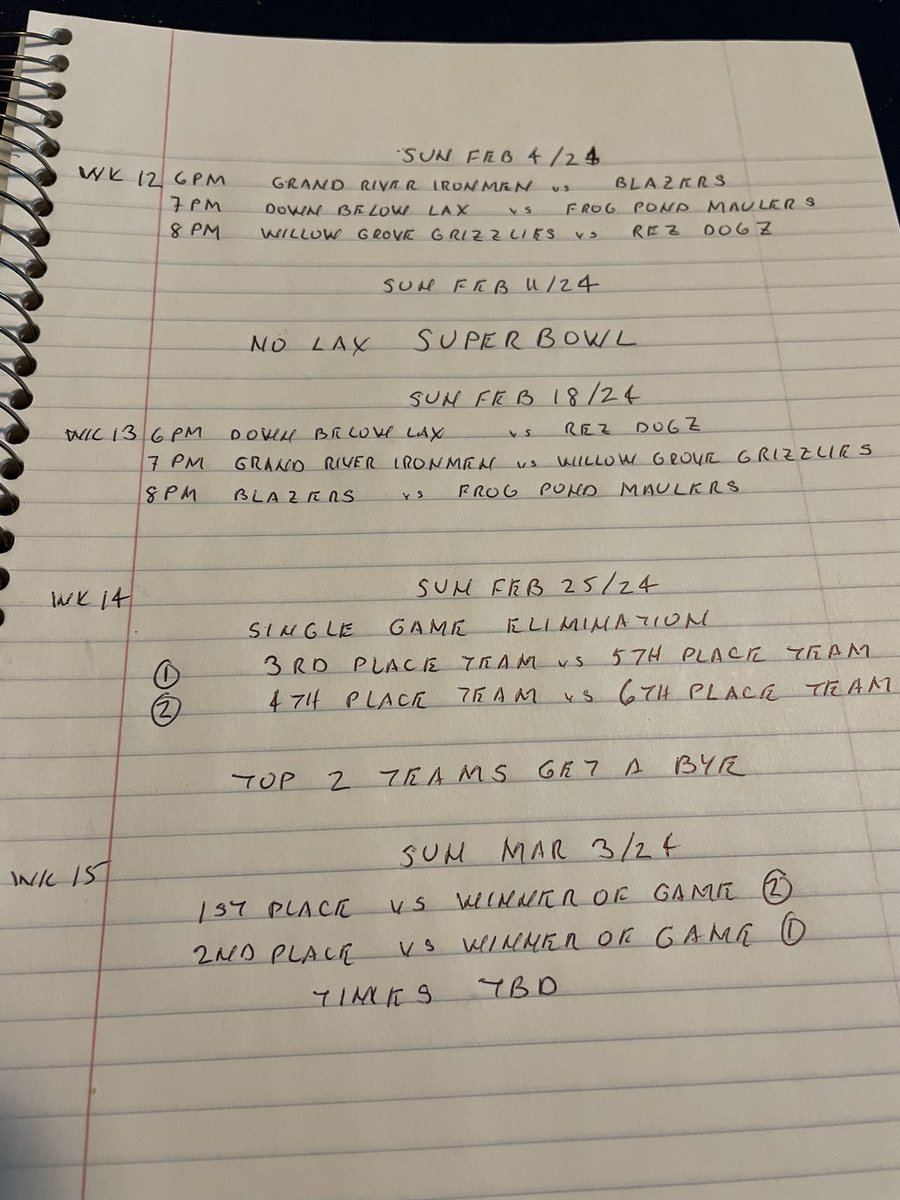 SUN FEB 4/24
WK 12 6PM GRAND RIVER IRONMEN vs BLAZERS
7PM DOWN BELOW LAX vs FROG POND MAULERS
8PM WILLOW GROVE GRIZZLIES vs REZ DOGZ
SUN FEB 11/24
NO LAX SUPERBOWL
SUN FEB 18/24
WK 13 6PM DOWN BELOW LAX vs REZ DOGZ
7PM GRAND RIVER IRONMEN vs WILLOW GROVE GRIZZLIES
8PM BLAZERS vs FROG POND MAULERS
WK 14 SUN FEB 25/24
SINGLE GAME ELIMINATION
① 3RD PLACE TEAM vs 5TH PLACE TEAM
② 4TH PLACE TEAM vs 6TH PLACE TEAM
TOP 2 TEAMS GET A BYE
WK 15 SUN MAR 3/24
1ST PLACE VS WINNER OF GAME ②
2ND PLACE VS WINNER OF GAME ①
TIMES TBD